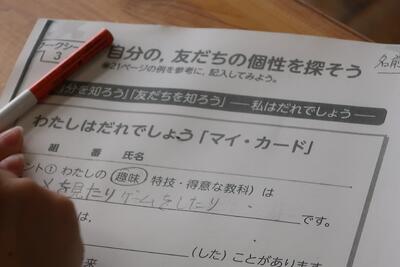 ワークシー
3
自分の,友だちの個性を探そう
21ページの例を参考に,記入してみよう。
名前
自分を知ろう」「友だちを知ろう」 ― 私はだれでしょう ―
わたしはだれでしょう「マイ・カード」
組 番 氏名
ント① わたしの(趣味 特技・得意な教科)は
を見たり ゲームをしたり です。
は、
(した)ことがあります
来